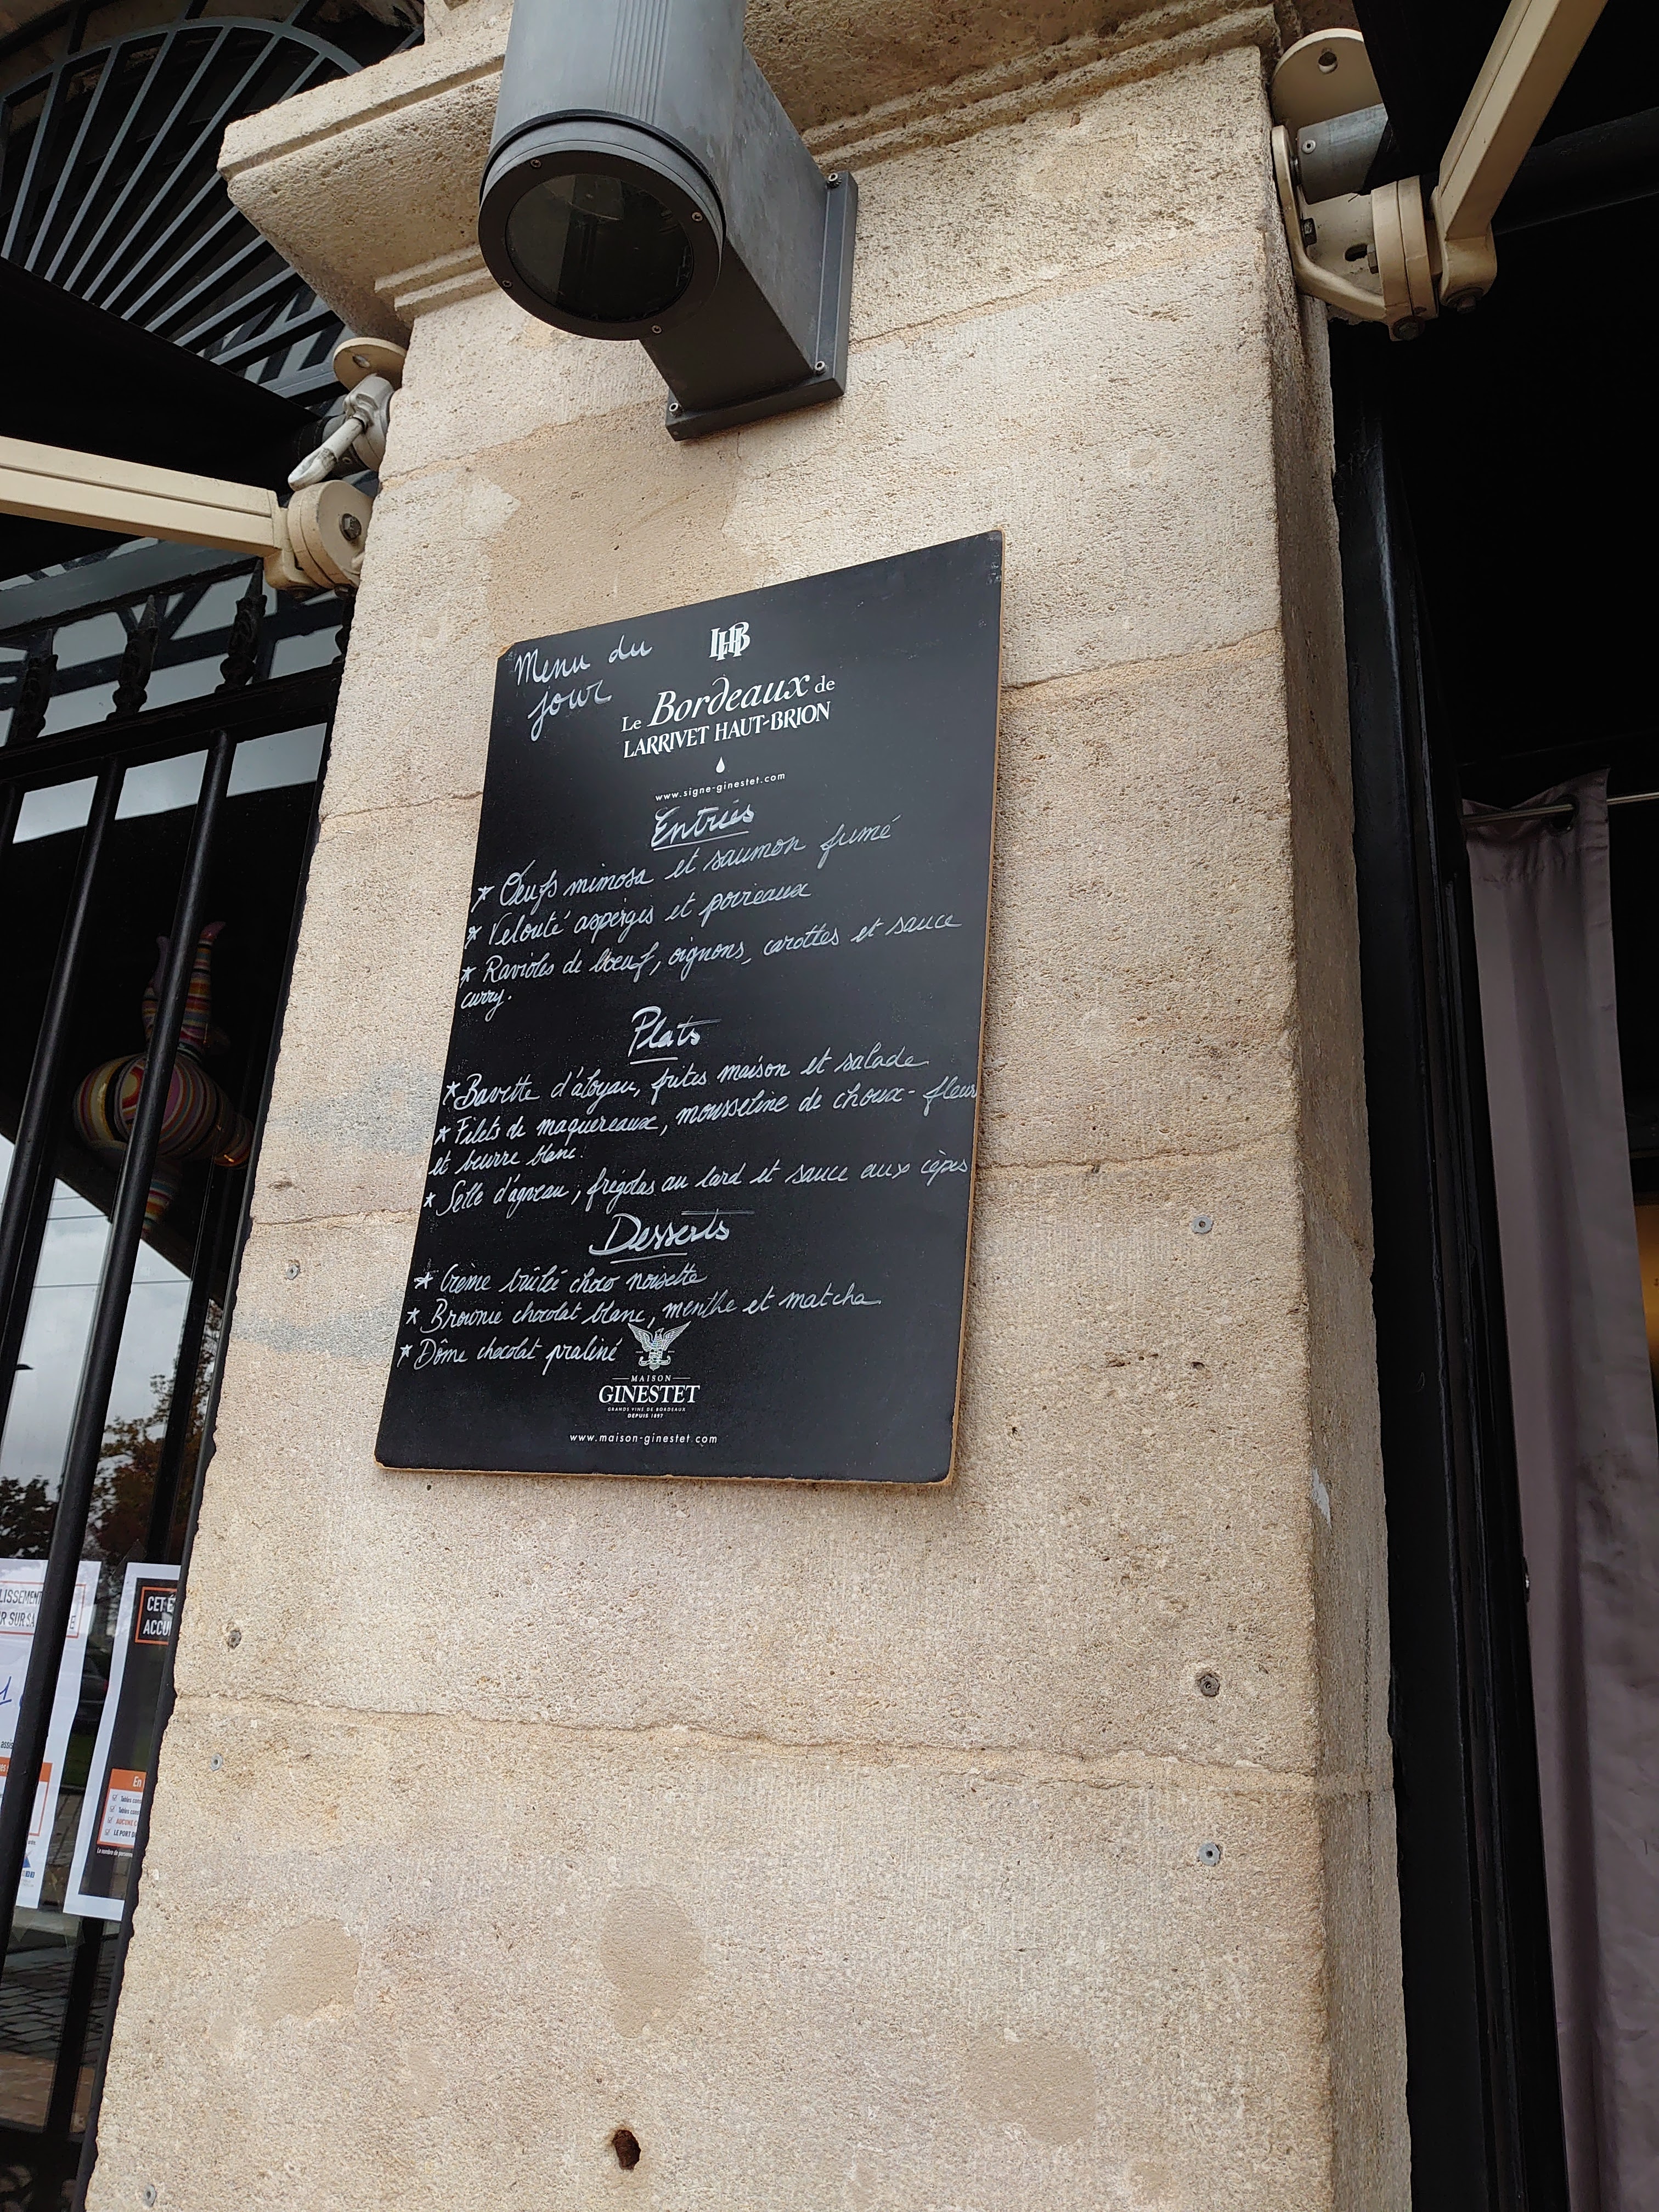 Menu du
jour
LHB
Le Bordeaux de
LARRIVET HAUT-BRION
www.signe-ginestet.com
Entrées
* Œufs mimosa et saumon fumé
* Velouté asperges et poireaux
* Ravioles de bœuf, oignons, carottes et sauce
curry.
Plats
* Bavette d'aloyau, frites maison et salade
* Filets de maquereaux, mousseline de choux-fleurs
et beurre blanc.
* Selle d'agneau, frégolas au lard et sauce aux cèpes
Desserts
* Crème brûlée choco noisette
* Brownie chocolat blanc, menthe et matcha
* Dôme chocolat praliné
MAISON
GINESTET
GRANDS VINS DE BORDEAUX
DEPUIS 1897
www.maison-ginestet.com
LISSEMENT
R SUR SA
CET É
ACCU
En
Tables
Tables
AUCUNE C
LE PORT D